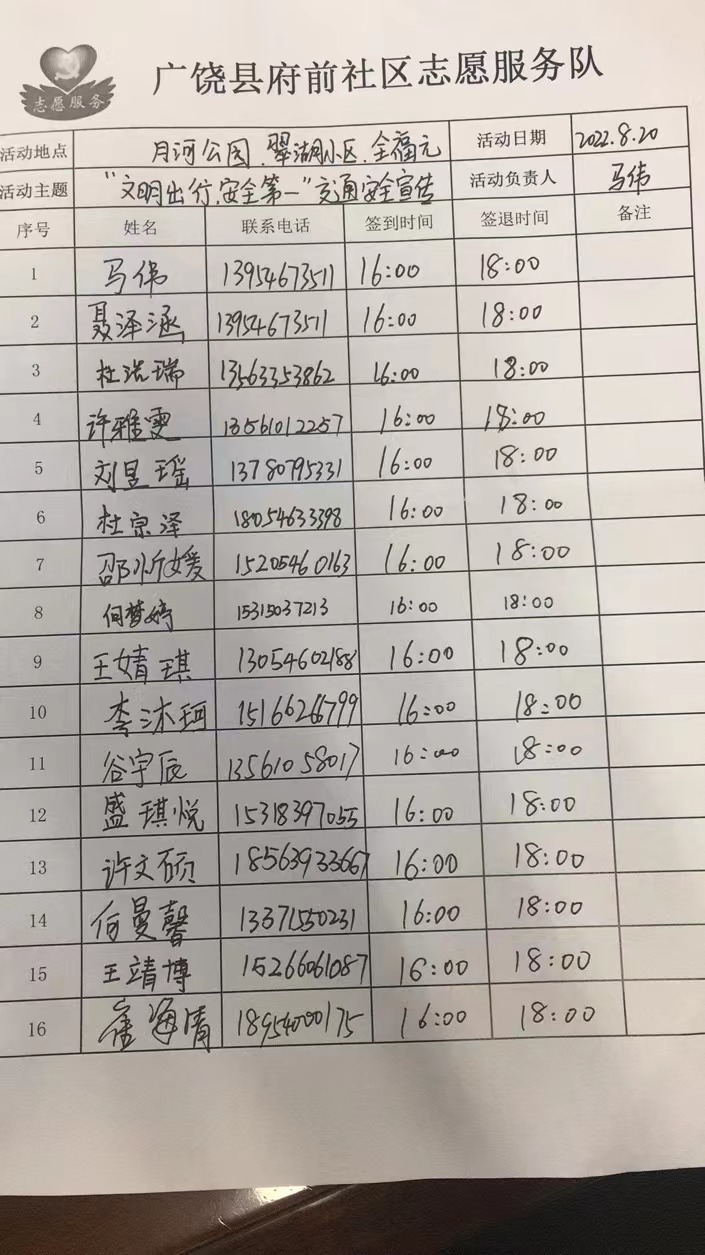 志愿服务
广饶县府前社区志愿服务队
活动地点 月河公园.翠湖小区.全福元 活动日期 2022.8.20
活动主题 “文明出行,安全第一”交通安全宣传 活动负责人 马伟
序号 姓名 联系电话 签到时间 签退时间 备注
1 马伟 13954673511 16:00 18:00
2 聂泽涵 13954673511 16:00 18:00
3 杜浩瑞 13563353862 16:00 18:00
4 许雅雯 13561012257 16:00 18:00
5 刘昱瑶 13780795331 16:00 18:00
6 杜宗泽 18054633398 16:00 18:00
7 邵忻媛 15205460163 16:00 18:00
8 何梦婷 15315037213 16:00 18:00
9 王婧琪 13054602188 16:00 18:00
10 李沐珂 15166266799 16:00 18:00
11 谷宇辰 13561058017 16:00 18:00
12 盛琪悦 15318397055 16:00 18:00
13 许文硕 18563933667 16:00 18:00
14 何曼馨 13371550231 16:00 18:00
15 王靖博 15266061087 16:00 18:00
16 海清 18954000175 16:00 18:00